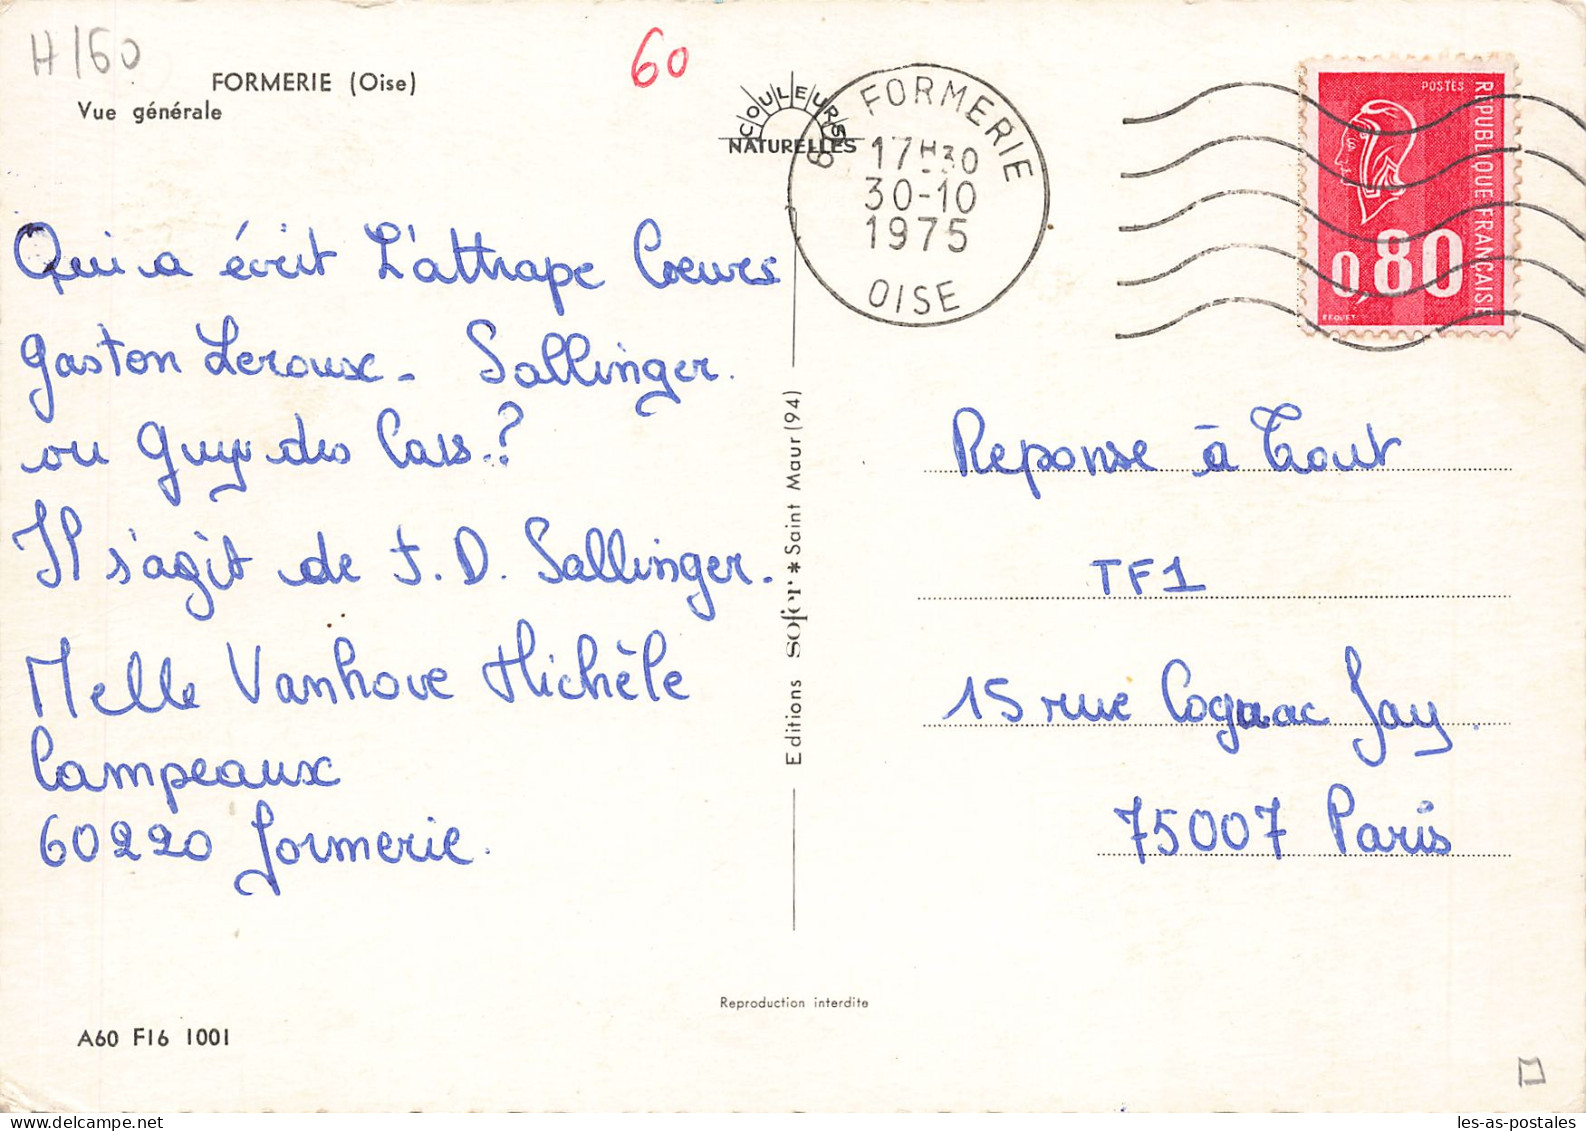 H160
60
FORMERIE (Oise)
Vue générale
COULEURS
NATURELLES
60 FORMERIE
17H30
30-10
1975
OISE
POSTES
REPUBLIQUE FRANÇAISE
0,80
BEQUET
Qui a écrit L'attrape Coeurs
Gaston Leroux - Sallinger.
ou Guy des Cars.?
Il s'agit de J. D. Sallinger.
Melle Vanhove Michèle
Campeaux
60220 Formerie.
Editions sofer * Saint Maur (94)
Reponse à Tout
TF1
15 rue Cognac Jay.
75007 Paris
Reproduction interdite
A60 F16 1001
les-as-postales